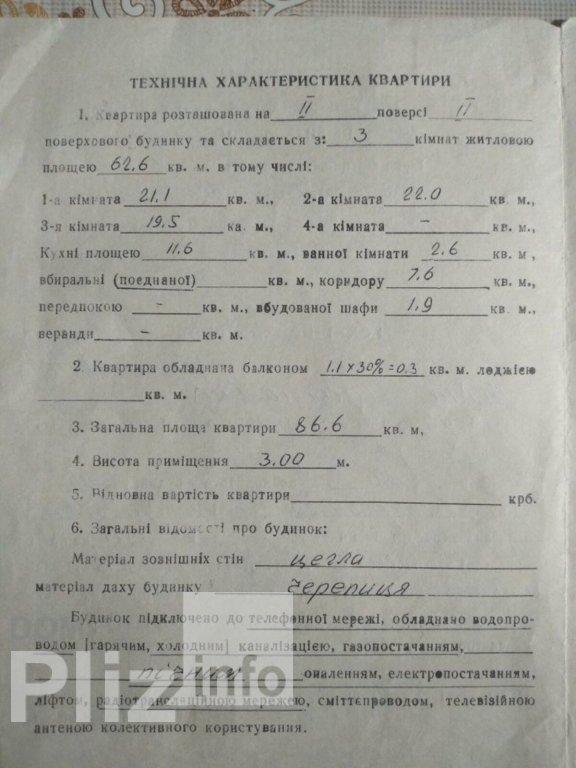 ТЕХНІЧНА ХАРАКТЕРИСТИКА КВАРТИРИ
1. Квартира розташована на II поверсі II
поверхового будинку та складається з: 3 кімнат житловою
площею 62.6 кв. м. в тому числі:
1-а кімната 21.1 кв. м., 2-а кімната 22.0 кв. м.,
3-я кімната 19.5 кв. м., 4-а кімната – кв. м.,
Кухні площею 11.6 кв. м., ванної кімнати 2.6 кв. м,
вбиральні (поєднаної) кв. м., коридору 7.6 кв. м.,
передпокою – кв. м., вбудованої шафи 1.9 кв. м.,
веранди – кв. м.
2. Квартира обладнана балконом 1.1 х 30% = 0.3 кв. м. лоджією
кв. м.
3. Загальна площа квартири 86.6 кв. м,
4. Висота приміщення 3.00 м.
5. Відновна вартість квартири крб.
6. Загальні відомості про будинок:
Матеріал зовнішніх стін цегла
матеріал даху будинку черепиця
Будинок підключено до телефонної мережі, обладнано водопро-
водом [гарячим, холодним] каналізацією, газопостачанням,
пічним опаленням, електропостачанням,
ліфтом, радіотрансляційною мережею, сміттєпроводом, телевізійною
антеною колективного користування.
Pliz info